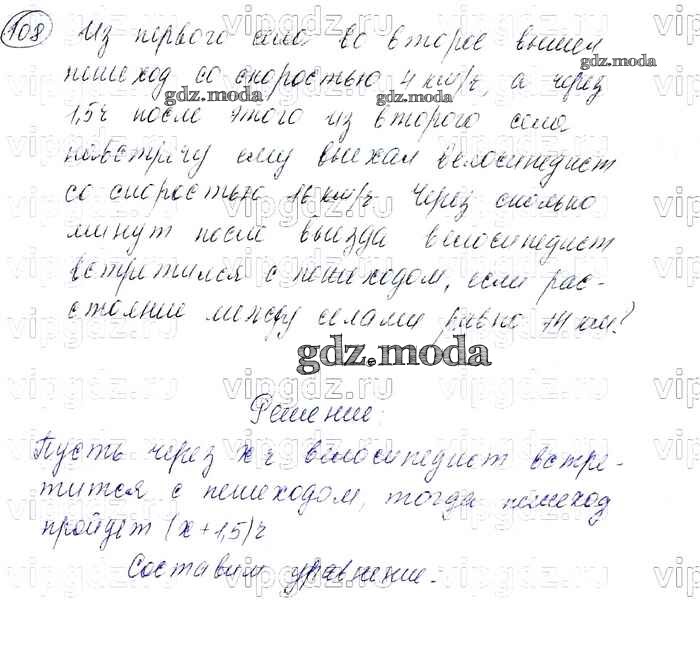 108 Из первого села во второе вышел
пешеход со скоростью 4 км/ч, а через
1,5ч после этого из второго села
навстречу ему выехал велосипедист
со скоростью 16 км/ч Через сколько
минут после выезда велосипедист
встретился с пешеходом, если рас-
стояние между селами равно 14 км?
gdz.moda
Решение:
Пусть через х ч велосипедист встре-
тится с пешеходом, тогда пешеход
пройдёт (х+1,5)ч
Составим уравнение.